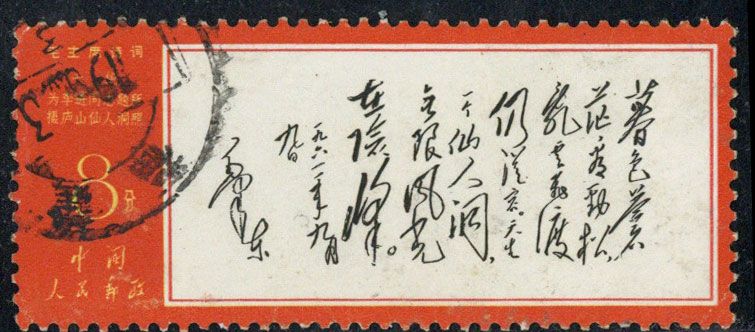 毛主席诗词
为李进同志题所
摄庐山仙人洞照
8分
中国
人民邮政
暮色蒼
茫看勁松,
亂云飛渡
仍從容。天生
一个仙人洞,
无限風光
在險峰。
一九六一年九月
九日
毛澤東